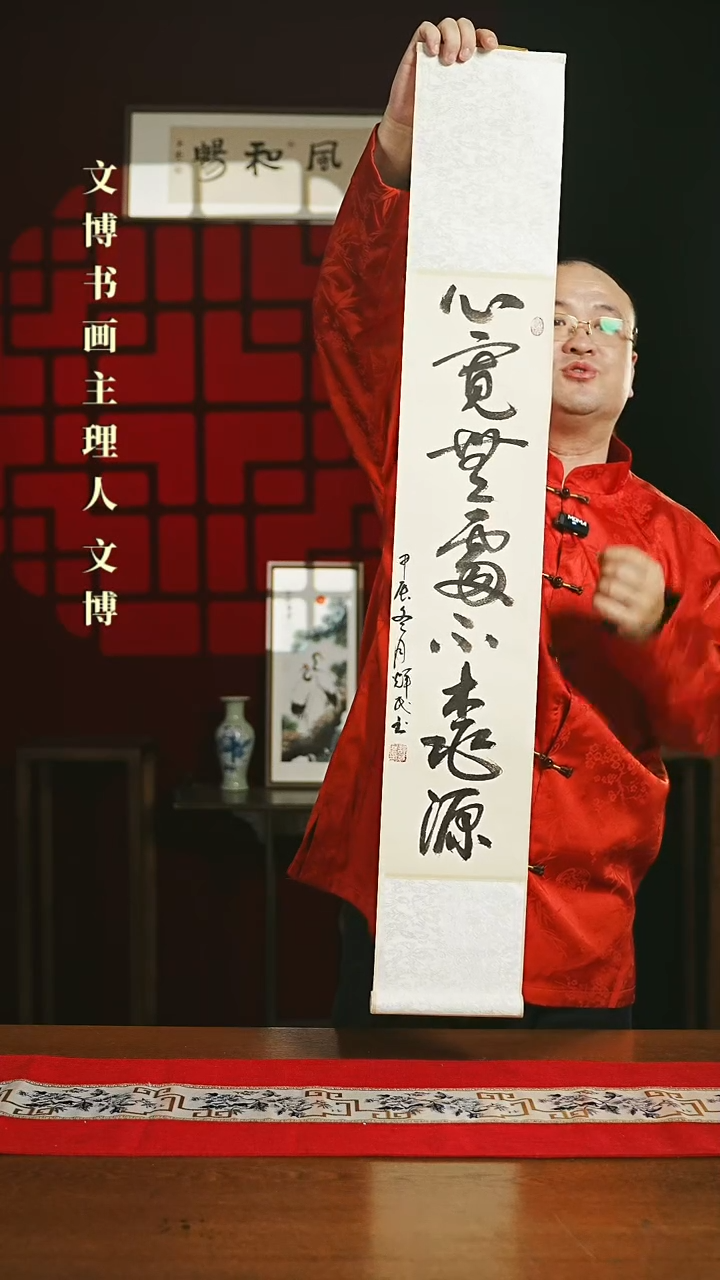 文博书画主理人 文博
風和暢
心寬無處不桃源
甲辰冬月輝民書